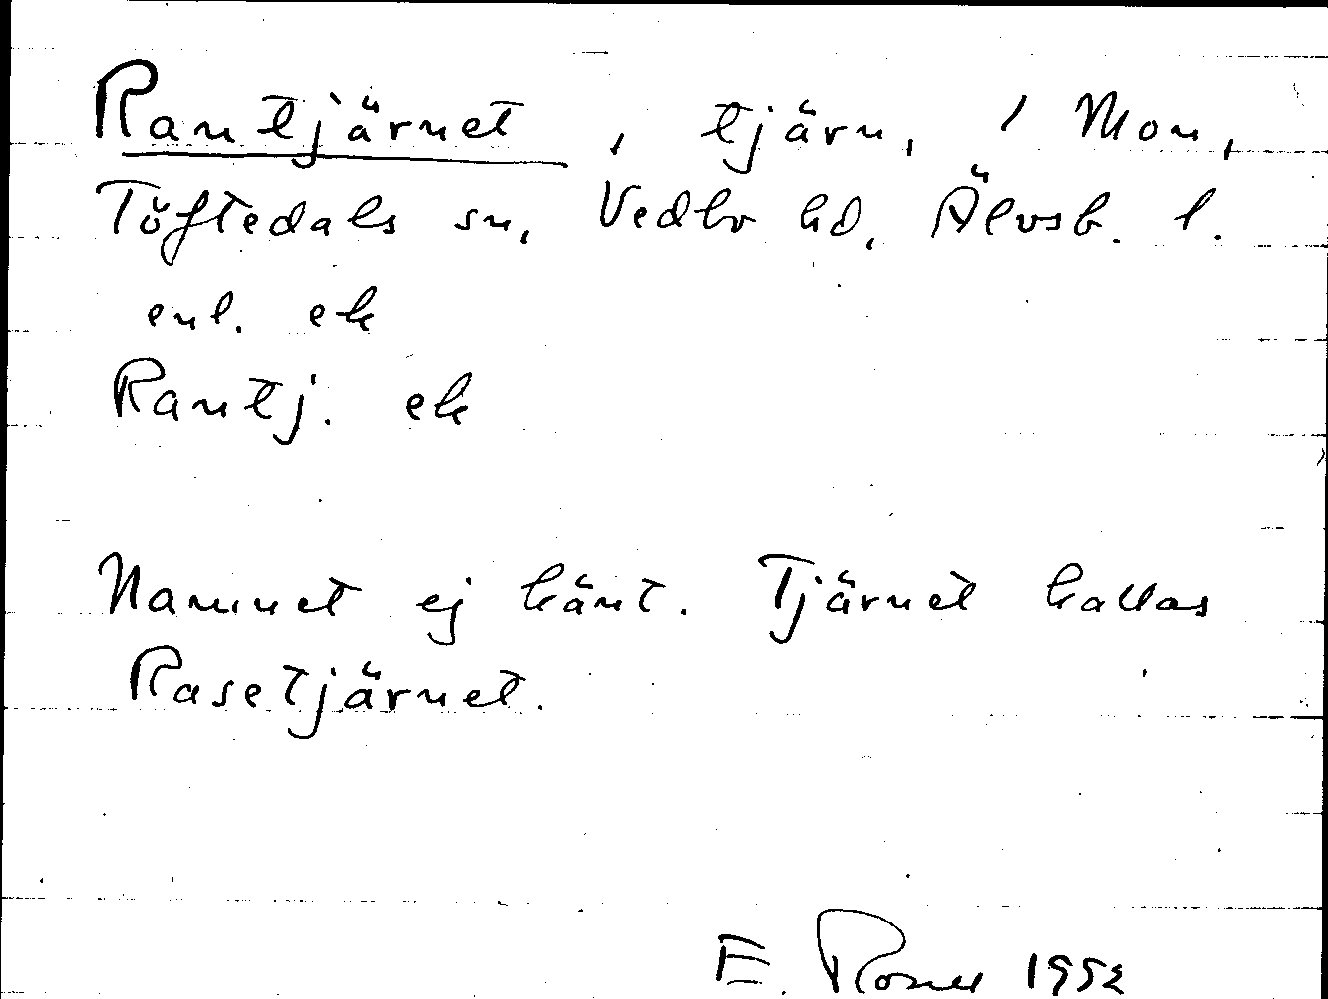 Rantjärnet, tjärn, 1 Mon,
Töftedals sn, Vedbo hd, Älvsb. l.
enl. ek
Rantj. ek
Namnet ej känt. Tjärnet kallas
Rasetjärnet.
E. 1952